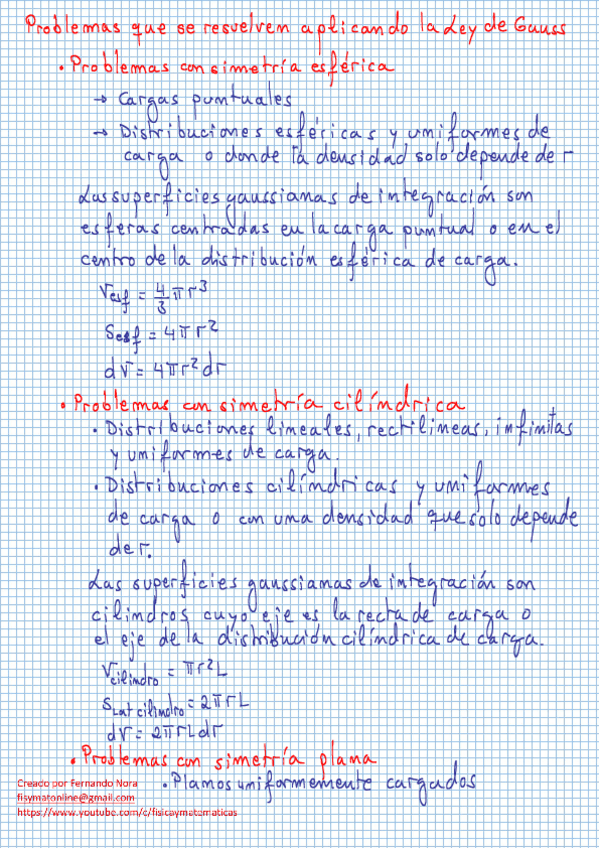 Problemas que se resuelven aplicando la Ley de Gauss
• Problemas con simetría esférica
→ Cargas puntuales
→ Distribuciones esféricas y uniformes de
carga o donde la densidad solo depende de r
Las superficies gaussianas de integración son
esferas centradas en la carga puntual o en el
centro de la distribución esférica de carga.
Vesf = 4/3 πr³
Sesf = 4πr²
dV = 4πr² dr
• Problemas con simetría cilíndrica
• Distribuciones lineales, rectilíneas, infinitas
y uniformes de carga.
• Distribuciones cilíndricas y uniformes
de carga o con una densidad que solo depende
de r.
Las superficies gaussianas de integración son
cilindros cuyo eje es la recta de carga o
el eje de la distribución cilíndrica de carga.
Vcilindro = πr²L
SLat cilindro = 2πrL
dV = 2πrLdr
• Problemas con simetría plana
• Planos uniformemente cargados
Creado por Fernando Nora
fisymatonline@gmail.com
https://www.youtube.com/c/fisicaymatematicas